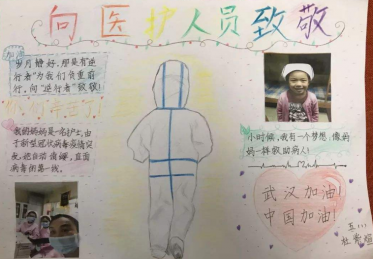 向医护人员致敬
加油
岁月静好,那是有逆
行者"为我们负重前
行,向"逆行者"致敬!
你们辛苦了!
我的妈妈是一名护士,由
于新型冠状病毒疫情突
发,她主动请缨,直面
病毒的第一线。
小时候,我有一个梦想,像妈
妈一样救助病人!
武汉加油!
中国加油!